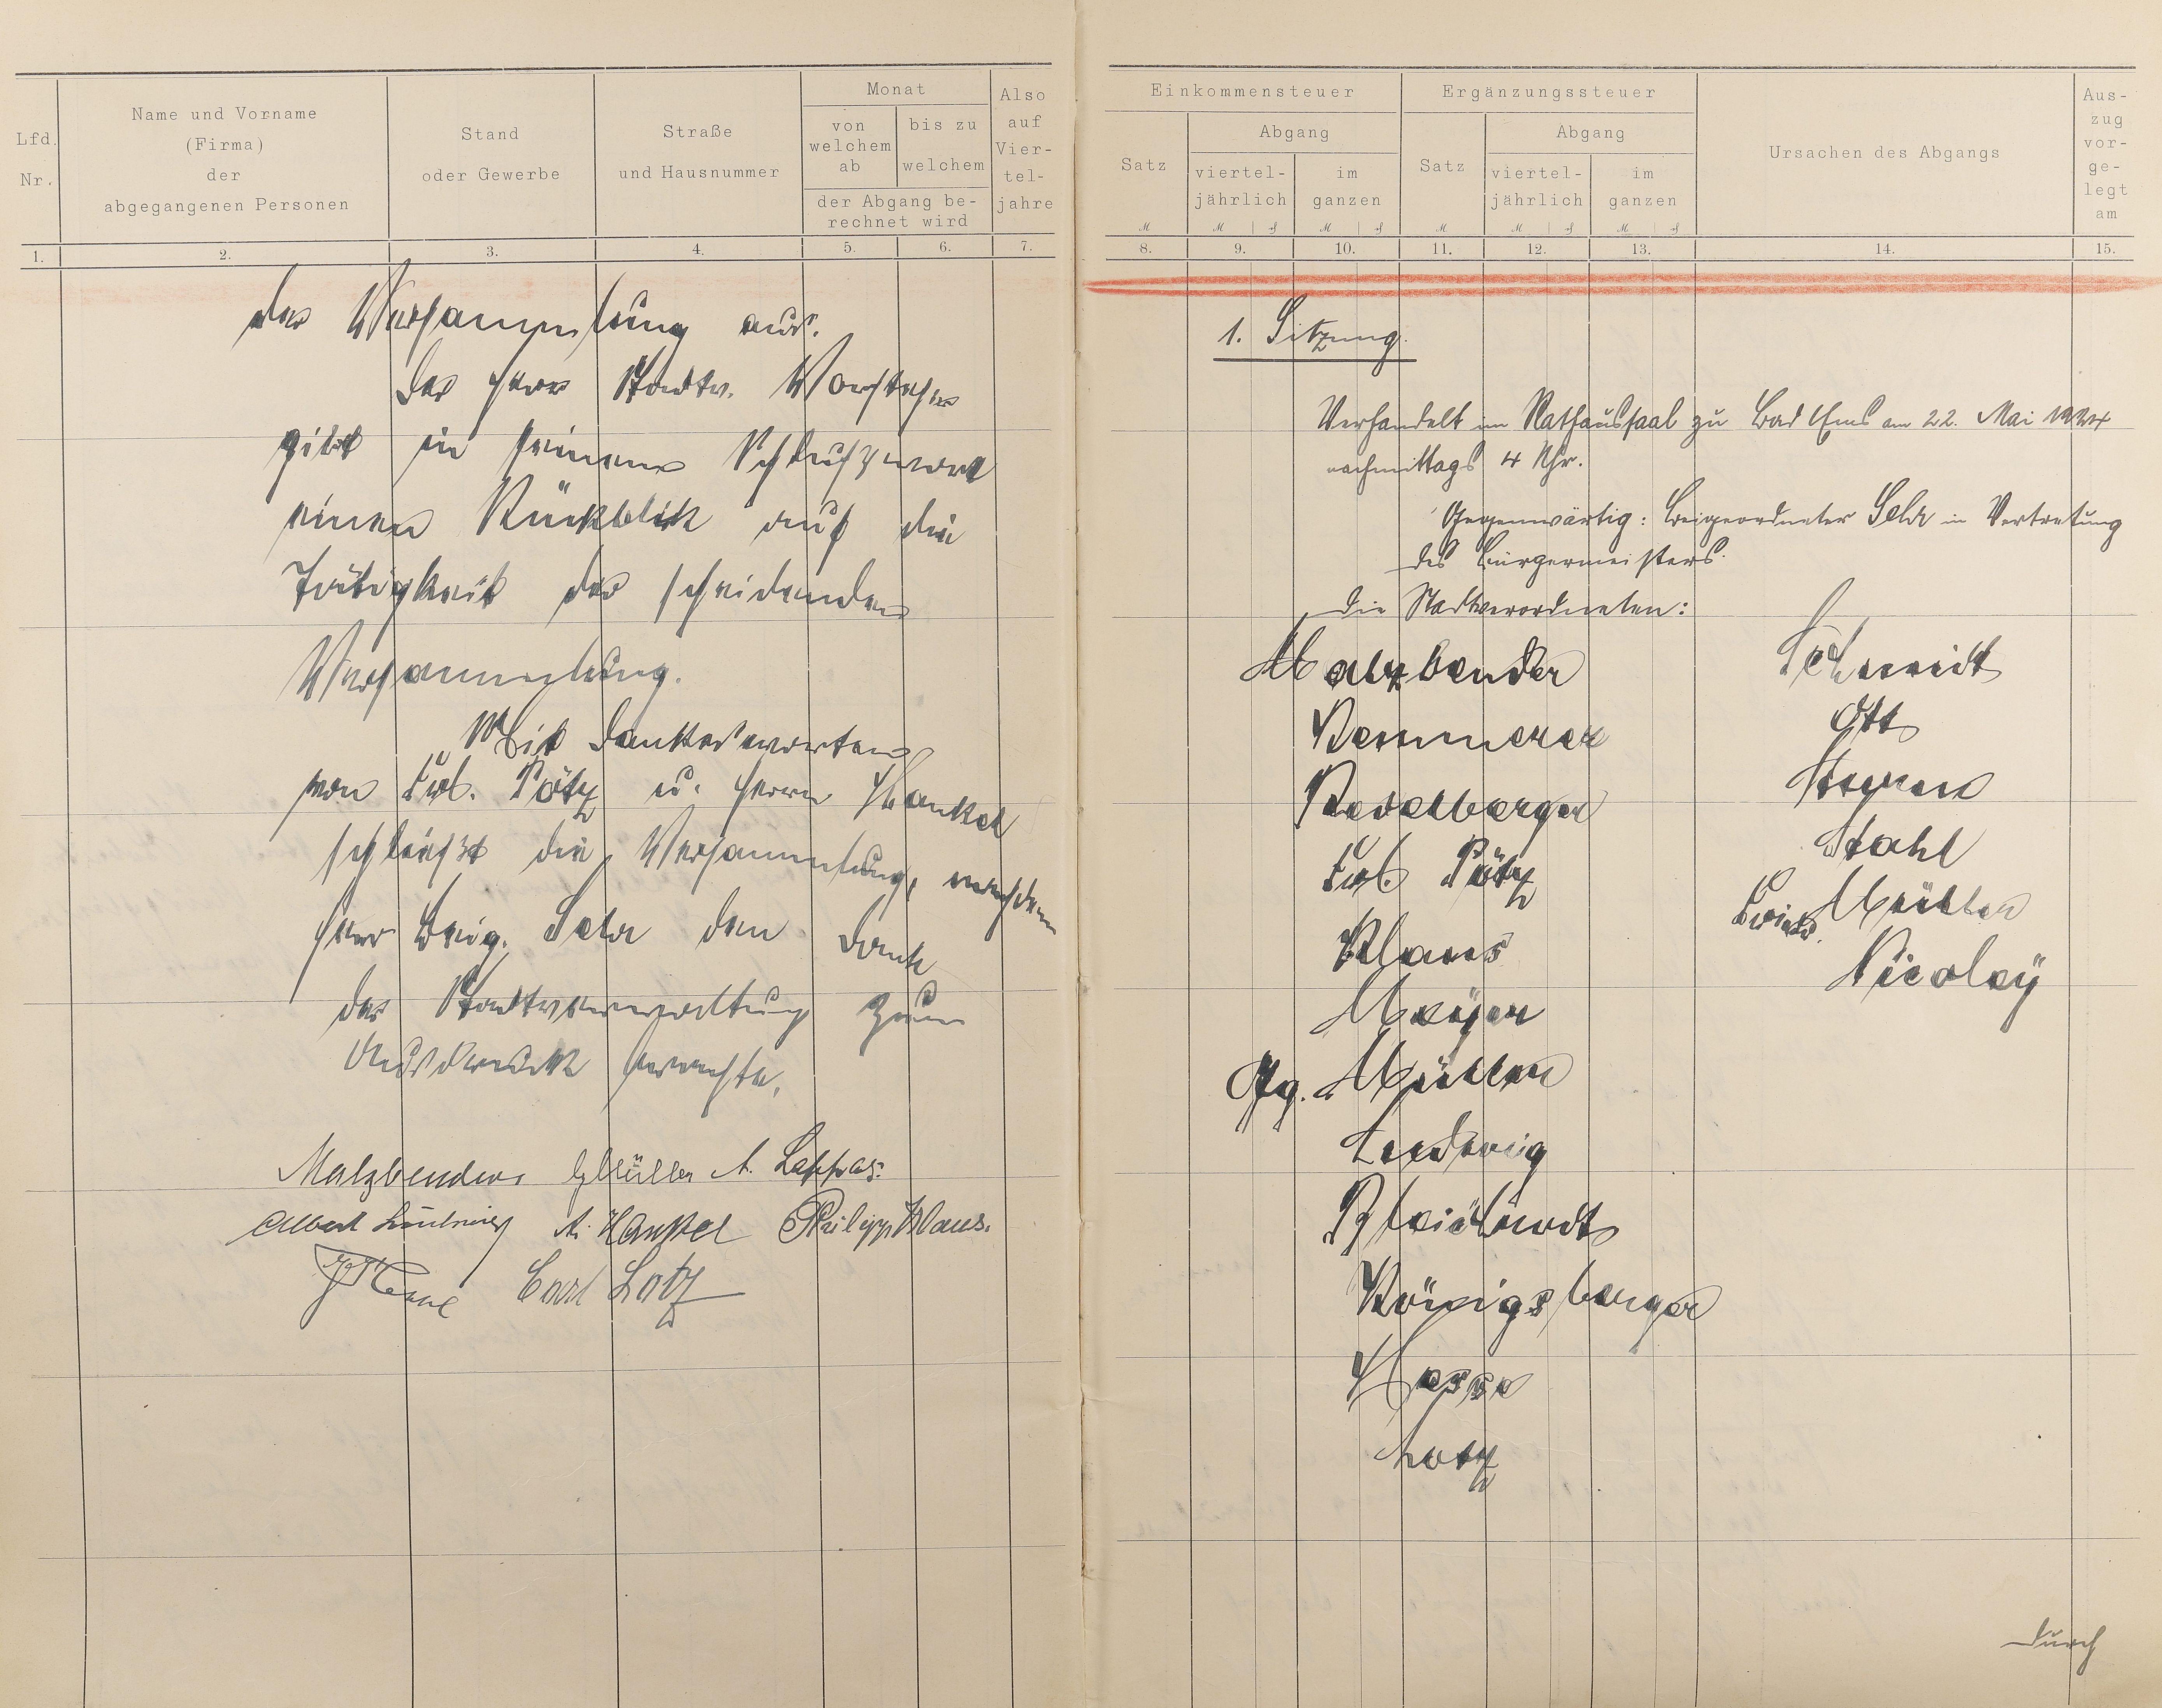 Lfd. Nr.
Name und Vorname
(Firma)
der
abgegangenen Personen
Stand
oder Gewerbe
Straße
und Hausnummer
Monat
von welchem ab
bis zu welchem
der Abgang be-
rechnet wird
Also auf Vier-
tel-
jahre
1. 2. 3. 4. 5. 6. 7.
der Versammlung aus.
Der Herr Stadtv. Vorsteher
gibt in seinem Schlußwort
einen Rückblick auf die
Tätigkeit der scheidenden
Versammlung.
Mit Dankesworten
von Frl. Pötz u. Herrn Hankel
schließt die Versammlung, nachdem
Herr Beig. Sehr dem Dank
der Stadtverwaltung zum
Ausdruck brachte.
Malzbender A. Lappas.
Albert A. Hankel Philipp Klaus.
Carl Lotz
Einkommensteuer
Satz
Abgang
viertel-
jährlich
im
ganzen
Ergänzungssteuer
Satz
Abgang
viertel-
jährlich
im
ganzen
Ursachen des Abgangs
Aus-
zug
vor-
ge-
legt
am
8. 9. 10. 11. 12. 13. 14. 15.
1. Sitzung.
Verhandelt im Rathaussaal zu Bad Ems am 22. Mai 1924
nachmittags 4 Uhr.
Gegenwärtig: Beigeordneter Sehr in Vertretung
des Bürgermeisters.
Die Stadtverordneten:
Malzbender
Kemmerer
Frl. Pötz
Klaus
Meyer
Gg. Müller
Ludwig
Königsberger
Hesse
Lotz
Schmidt
Ott
Stahl
Müller
Nicolay
Durch